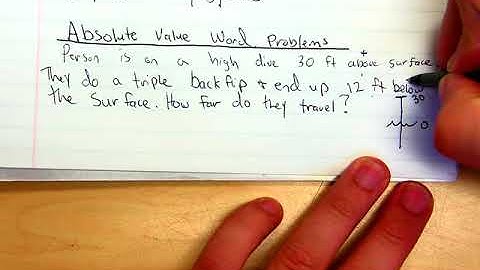 Absolute Value Word Problems
Person is on a high dive 30 ft above surface
+
They do a triple backflip + end up 12 ft below
the Surface. How far do they travel?
30
0